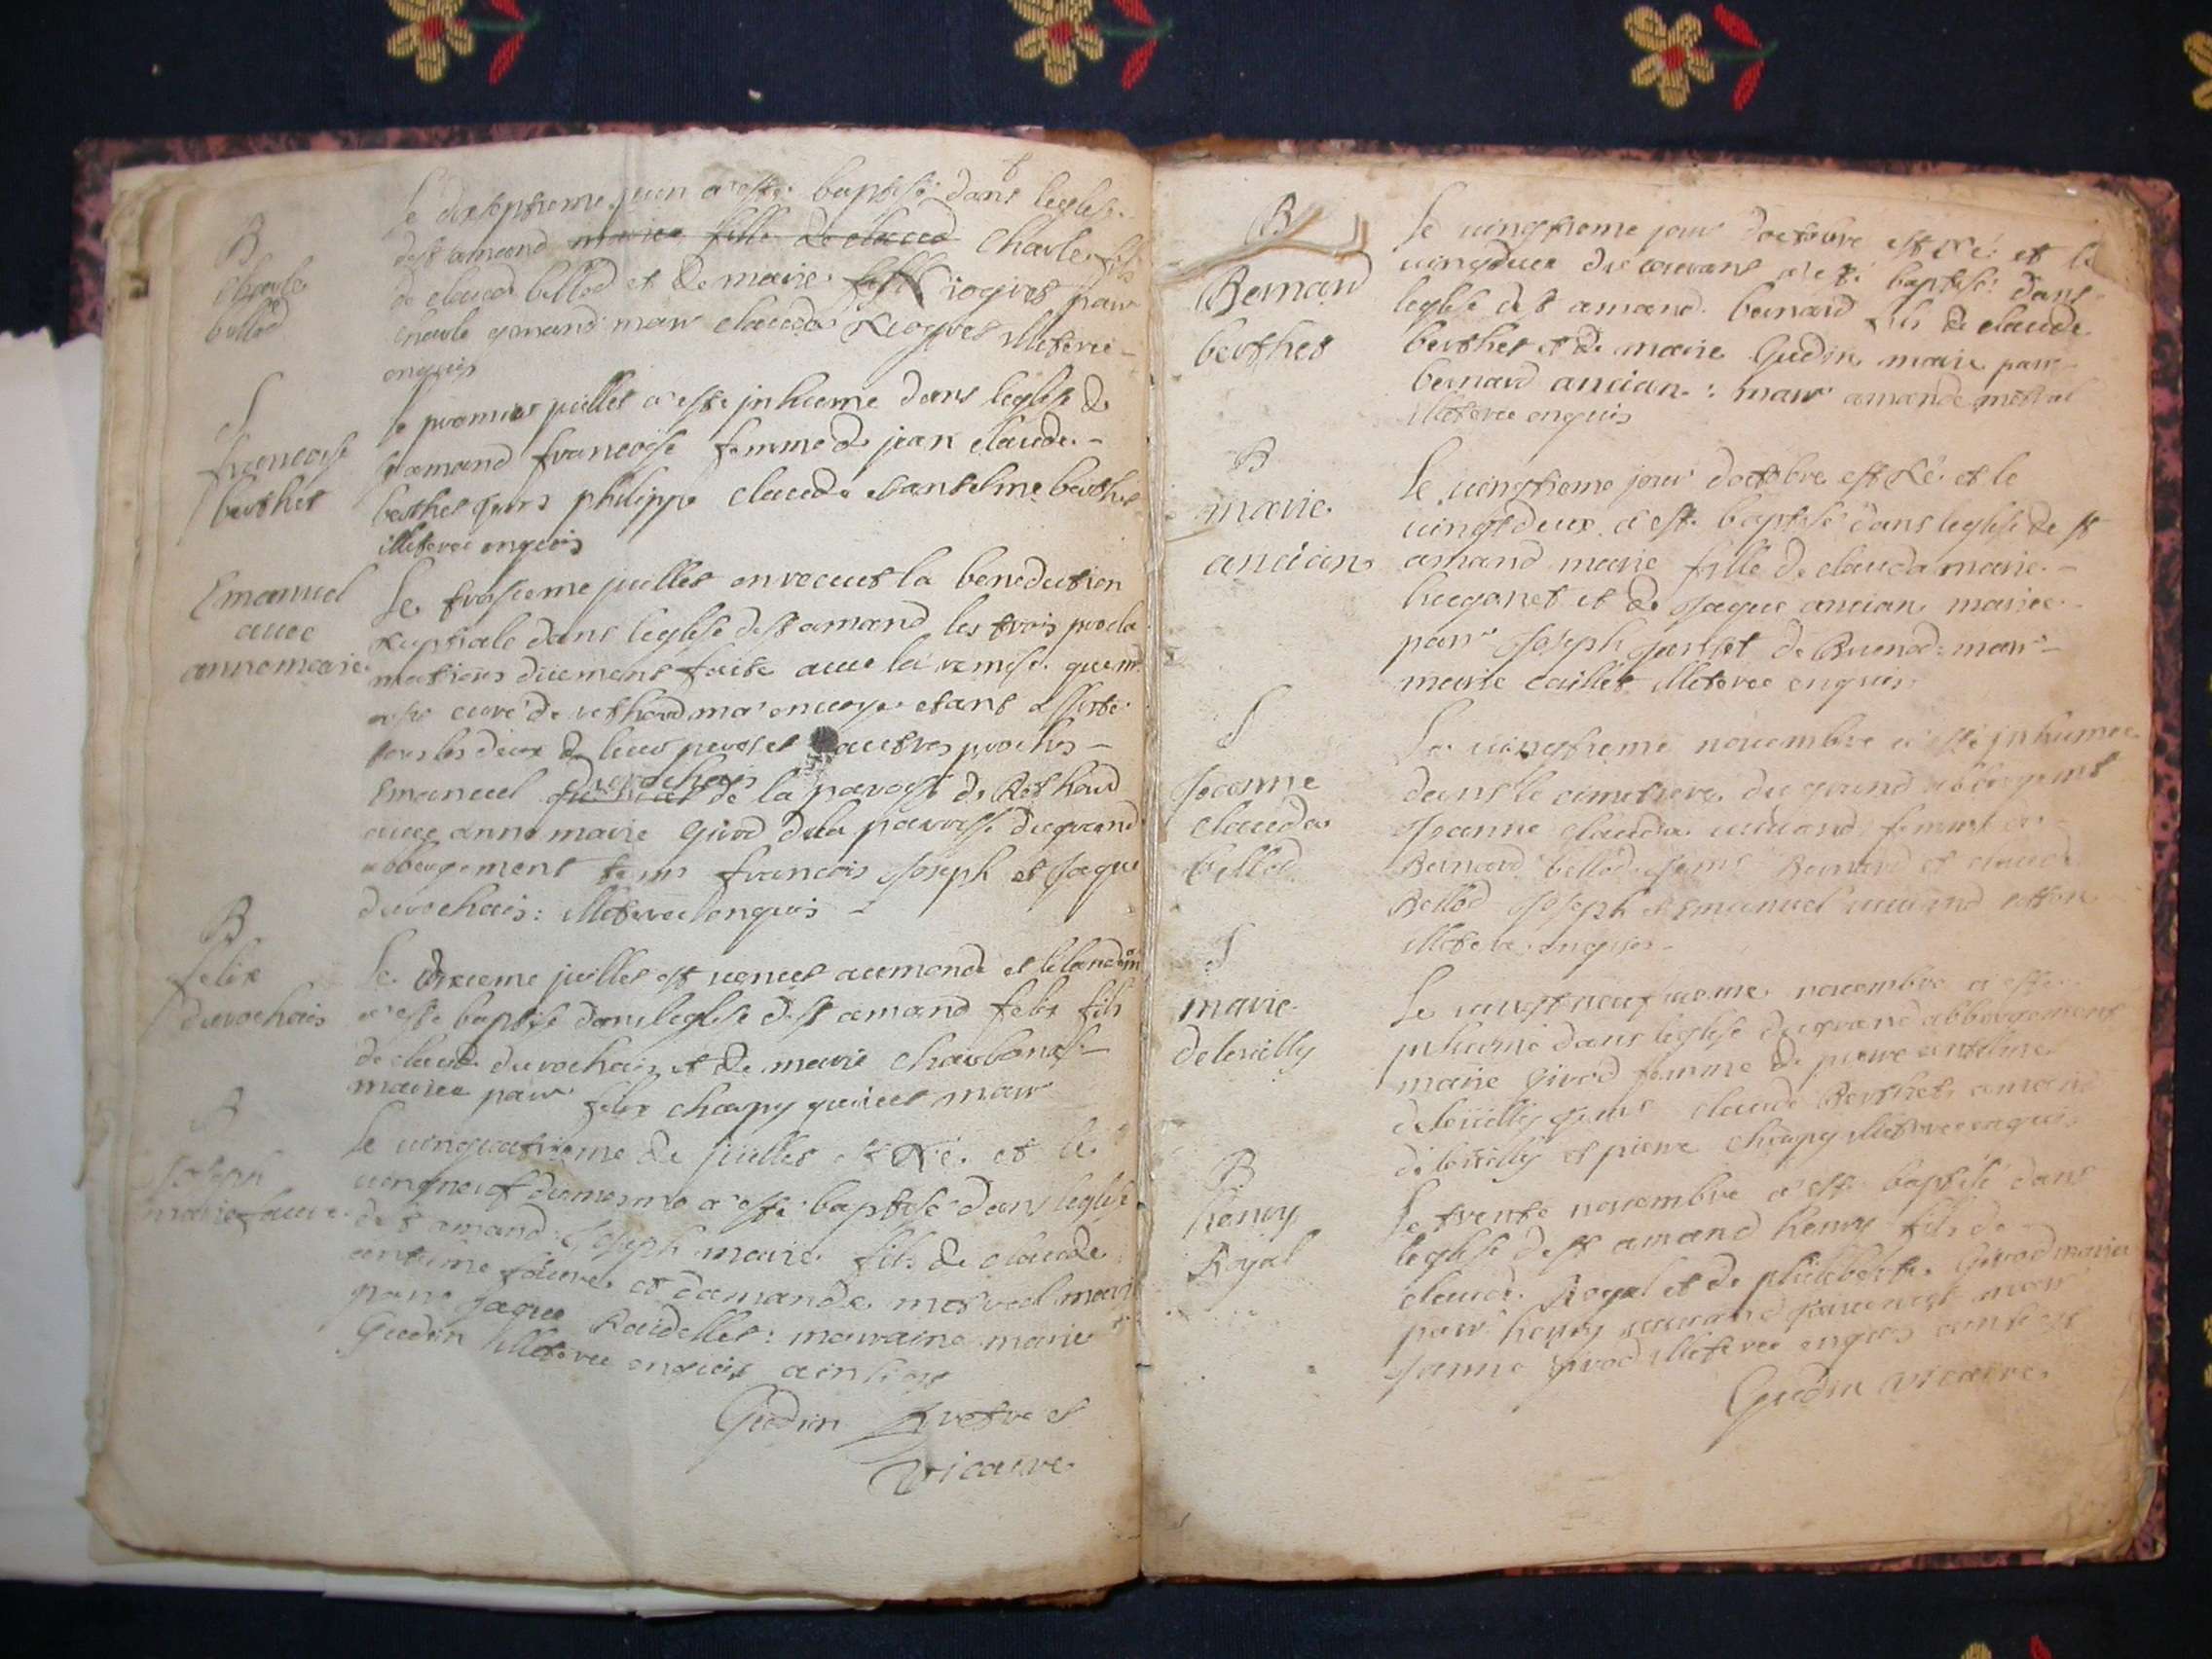 B
charle
bellod
le dixseptieme juin a este baptisé dans leglise
de st amand marie fille de claud charle fils
de claude bellod et de marie
charle maur clauda illeteree
enquis
S
francoise
berthet
le premier juillet a este inhume dans leglise de
st amand francoise femme de jean claude
berthet philippe claude et anthelme berthet
illeteree enquis
Emanuel
avec
anne marie
Le troisieme juillet on receut la benediction
nuptiale dans leglise de st amand les trois procla
mations düement faite avec la remise que m
curé de rothond ma envoye etant assiste
tous les deux de leur peres et autres proches
durochais
Emanuel de la paroisse de Rothond
avec anne marie girod de la paroisse du grand
abbergement francois Joseph et Jaque
durochais: illeteree enquis
B
felix
durochais
Le juillet est venut au monde et le landem
a este baptisé dans leglise de st amand felix fils
de claude durochais et de marie charbonet
mariee parr felix chapy marr
B
Joseph
marie faure
le vingquatrieme de juillet est né et le
vingneuf du mesme a este baptisé dans leglise
de st amand Joseph marie fils de claude
anthelme faure et damanda mornal marié
parr Jaque marraine marie
Gudin illeteree enquis ainsi est
Gudin pretre et
vicaire
B
Bernard
berthet
le vingtieme jour doctobre est né et le
vingtdeux du courant a este baptisé dans
leglise de st amand bernard fils de claude
berthet et de marie Gudin marie parr
bernard ancian: marr amanda mornal
illeteree enquis
B
marie
ancian
le vingtieme jour doctobre est né et le
vingtdeux a este baptisé dans leglise de st
amand marie fille de clauda marie
huganet et de Jaque ancian mariee
parr Joseph de Brenod marr
marie caillet illeteree enquis
S
Jeanne
clauda
bellod
Le vingtieme novembre a este inhumee
dans le cimetiere du grand abbergement
Jeanne clauda femme
Bernard bellod Bernard et claude
Bellod Joseph et Emanuel
illeteree enquis
S
marie
delevilly
Le vingtneufvieme novembre a este
inhumé dans leglise du grand abbergement
marie girod femme de pierre anthelme
delevilly claude Berthet amand
delevilly et pierre chapy illeteree enquis
B
henry
Royal
Le trente novembre a este baptisé dans
leglise de st amand henry fils de
claude Royal et de philiberte Girod mariee
parr henry marr
Janne girod illeteree enquis ainsi est
Gudin vicaire